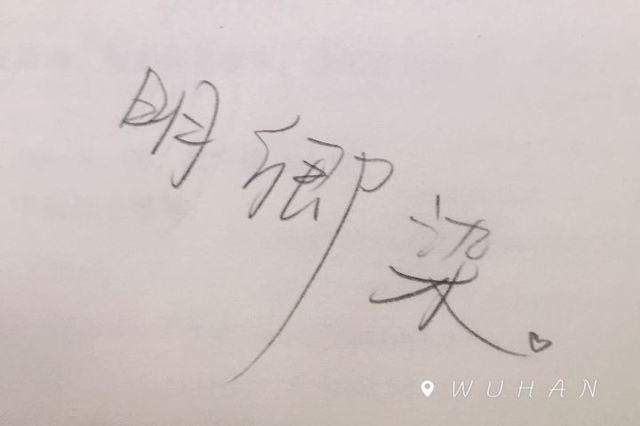 明卿染。
WUHAN